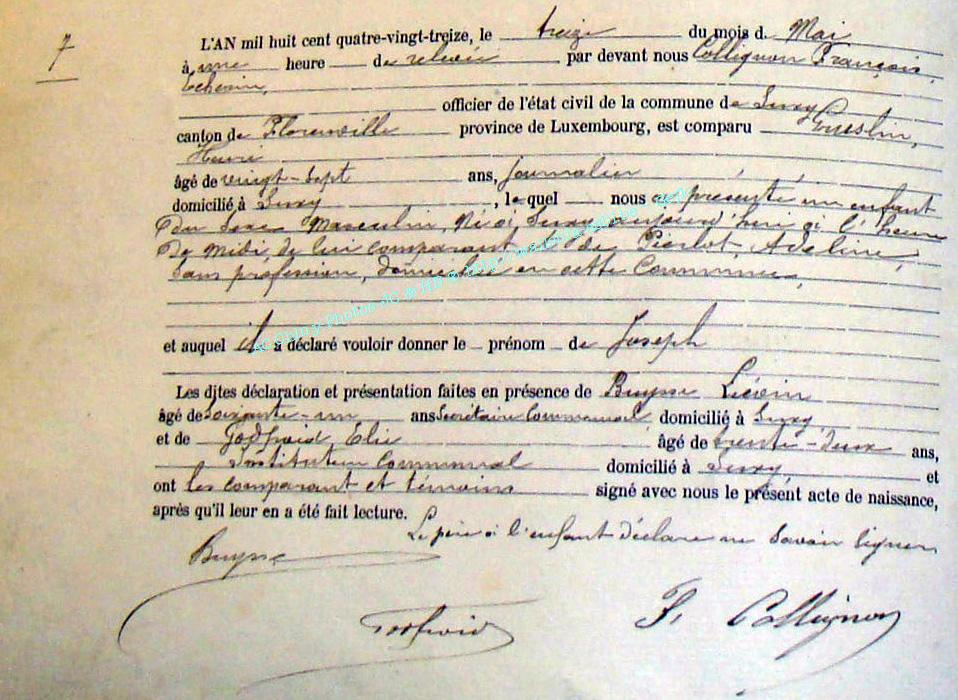 7
L'AN mil huit cent quatre-vingt-treize, le treize du mois d. Mai
à une heure de relevée par devant nous Collignon François,
Echevin,
officier de l'état civil de la commune de Suxy
canton de Florenville province de Luxembourg, est comparu Gueslin,
Henri
âgé de vingt-sept ans, journalier
domicilié à Suxy, lequel nous a présenté un enfant
du sexe Masculin, Né à Suxy aujourd'hui à l'heure
de midi, de lui comparant et de Pierlot, Adeline,
sans profession, domiciliée en cette Commune,
et auquel il a déclaré vouloir donner le prénom de Joseph
Les dites déclaration et présentation faites en présence de Buysse Liévin
âgé de soixante-un ans Secrétaire Communal, domicilié à Suxy
et de Godfroid Elie âgé de trente-deux ans,
Instituteur Communal domicilié à Suxy et
ont les comparant et témoins signé avec nous le présent acte de naissance,
après qu'il leur en a été fait lecture.
Le père à l'enfant déclare ne savoir signer
Buysse
Godfroid
F. Collignon